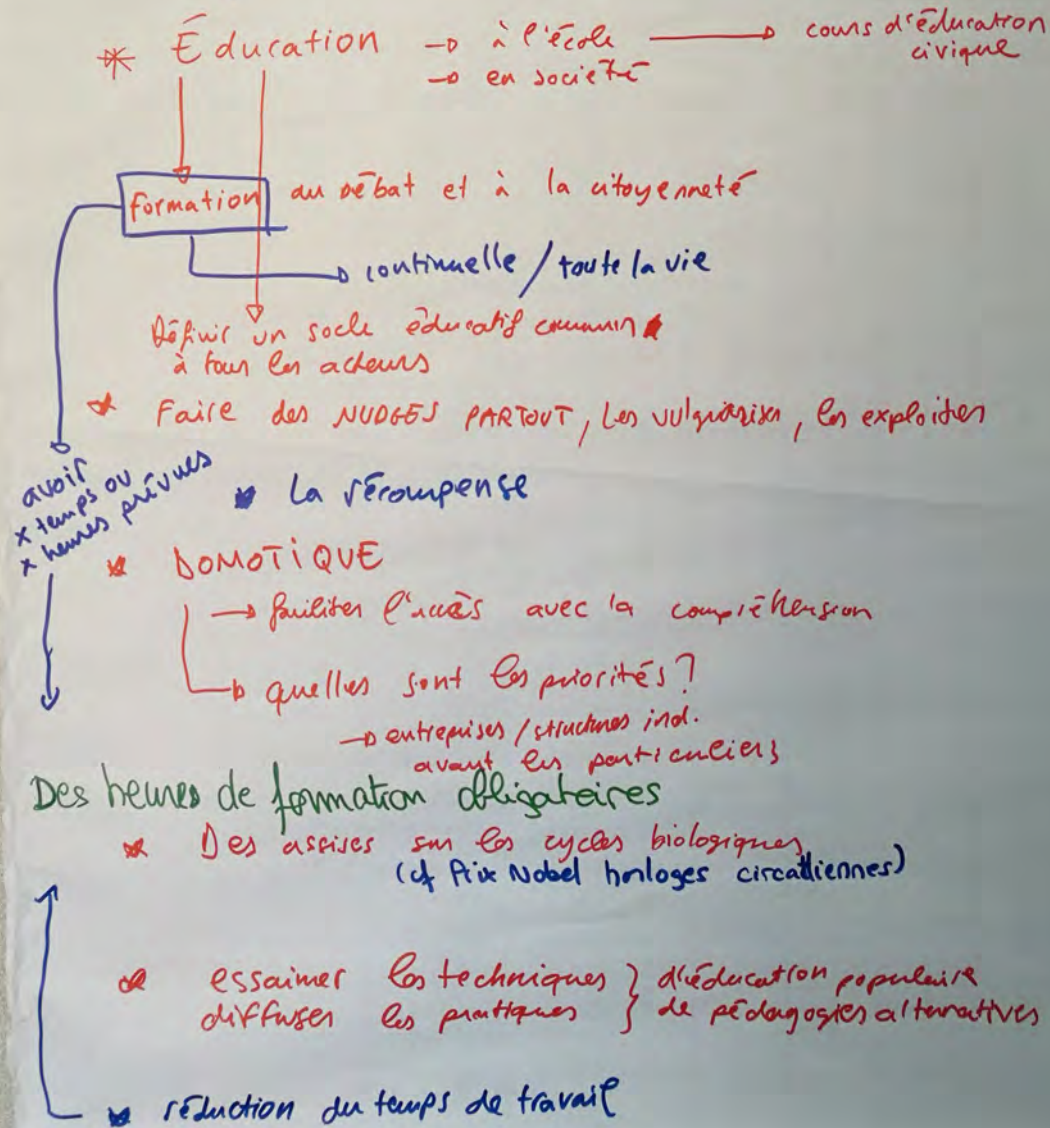 * Éducation → à l'école → cours d'éducation
civique
→ en société
formation au débat et à la citoyenneté
→ continuelle / toute la vie
Définir un socle éducatif commun
à tous les acteurs
* Faire des NUDGES PARTOUT, les vulgariser, les exploiter
avoir
x temps ou
x heures prévues
* La récompense
* DOMOTIQUE
→ faciliter l'accès avec la compréhension
→ quelles sont les priorités ?
→ entreprises / structures ind.
avant les particuliers
Des heures de formation obligatoires
* Des assises sur les cycles biologiques
(cf Prix Nobel horloges circadiennes)
* essaimer les techniques } d'éducation populaire
diffuser les pratiques } de pédagogies alternatives
* réduction du temps de travail